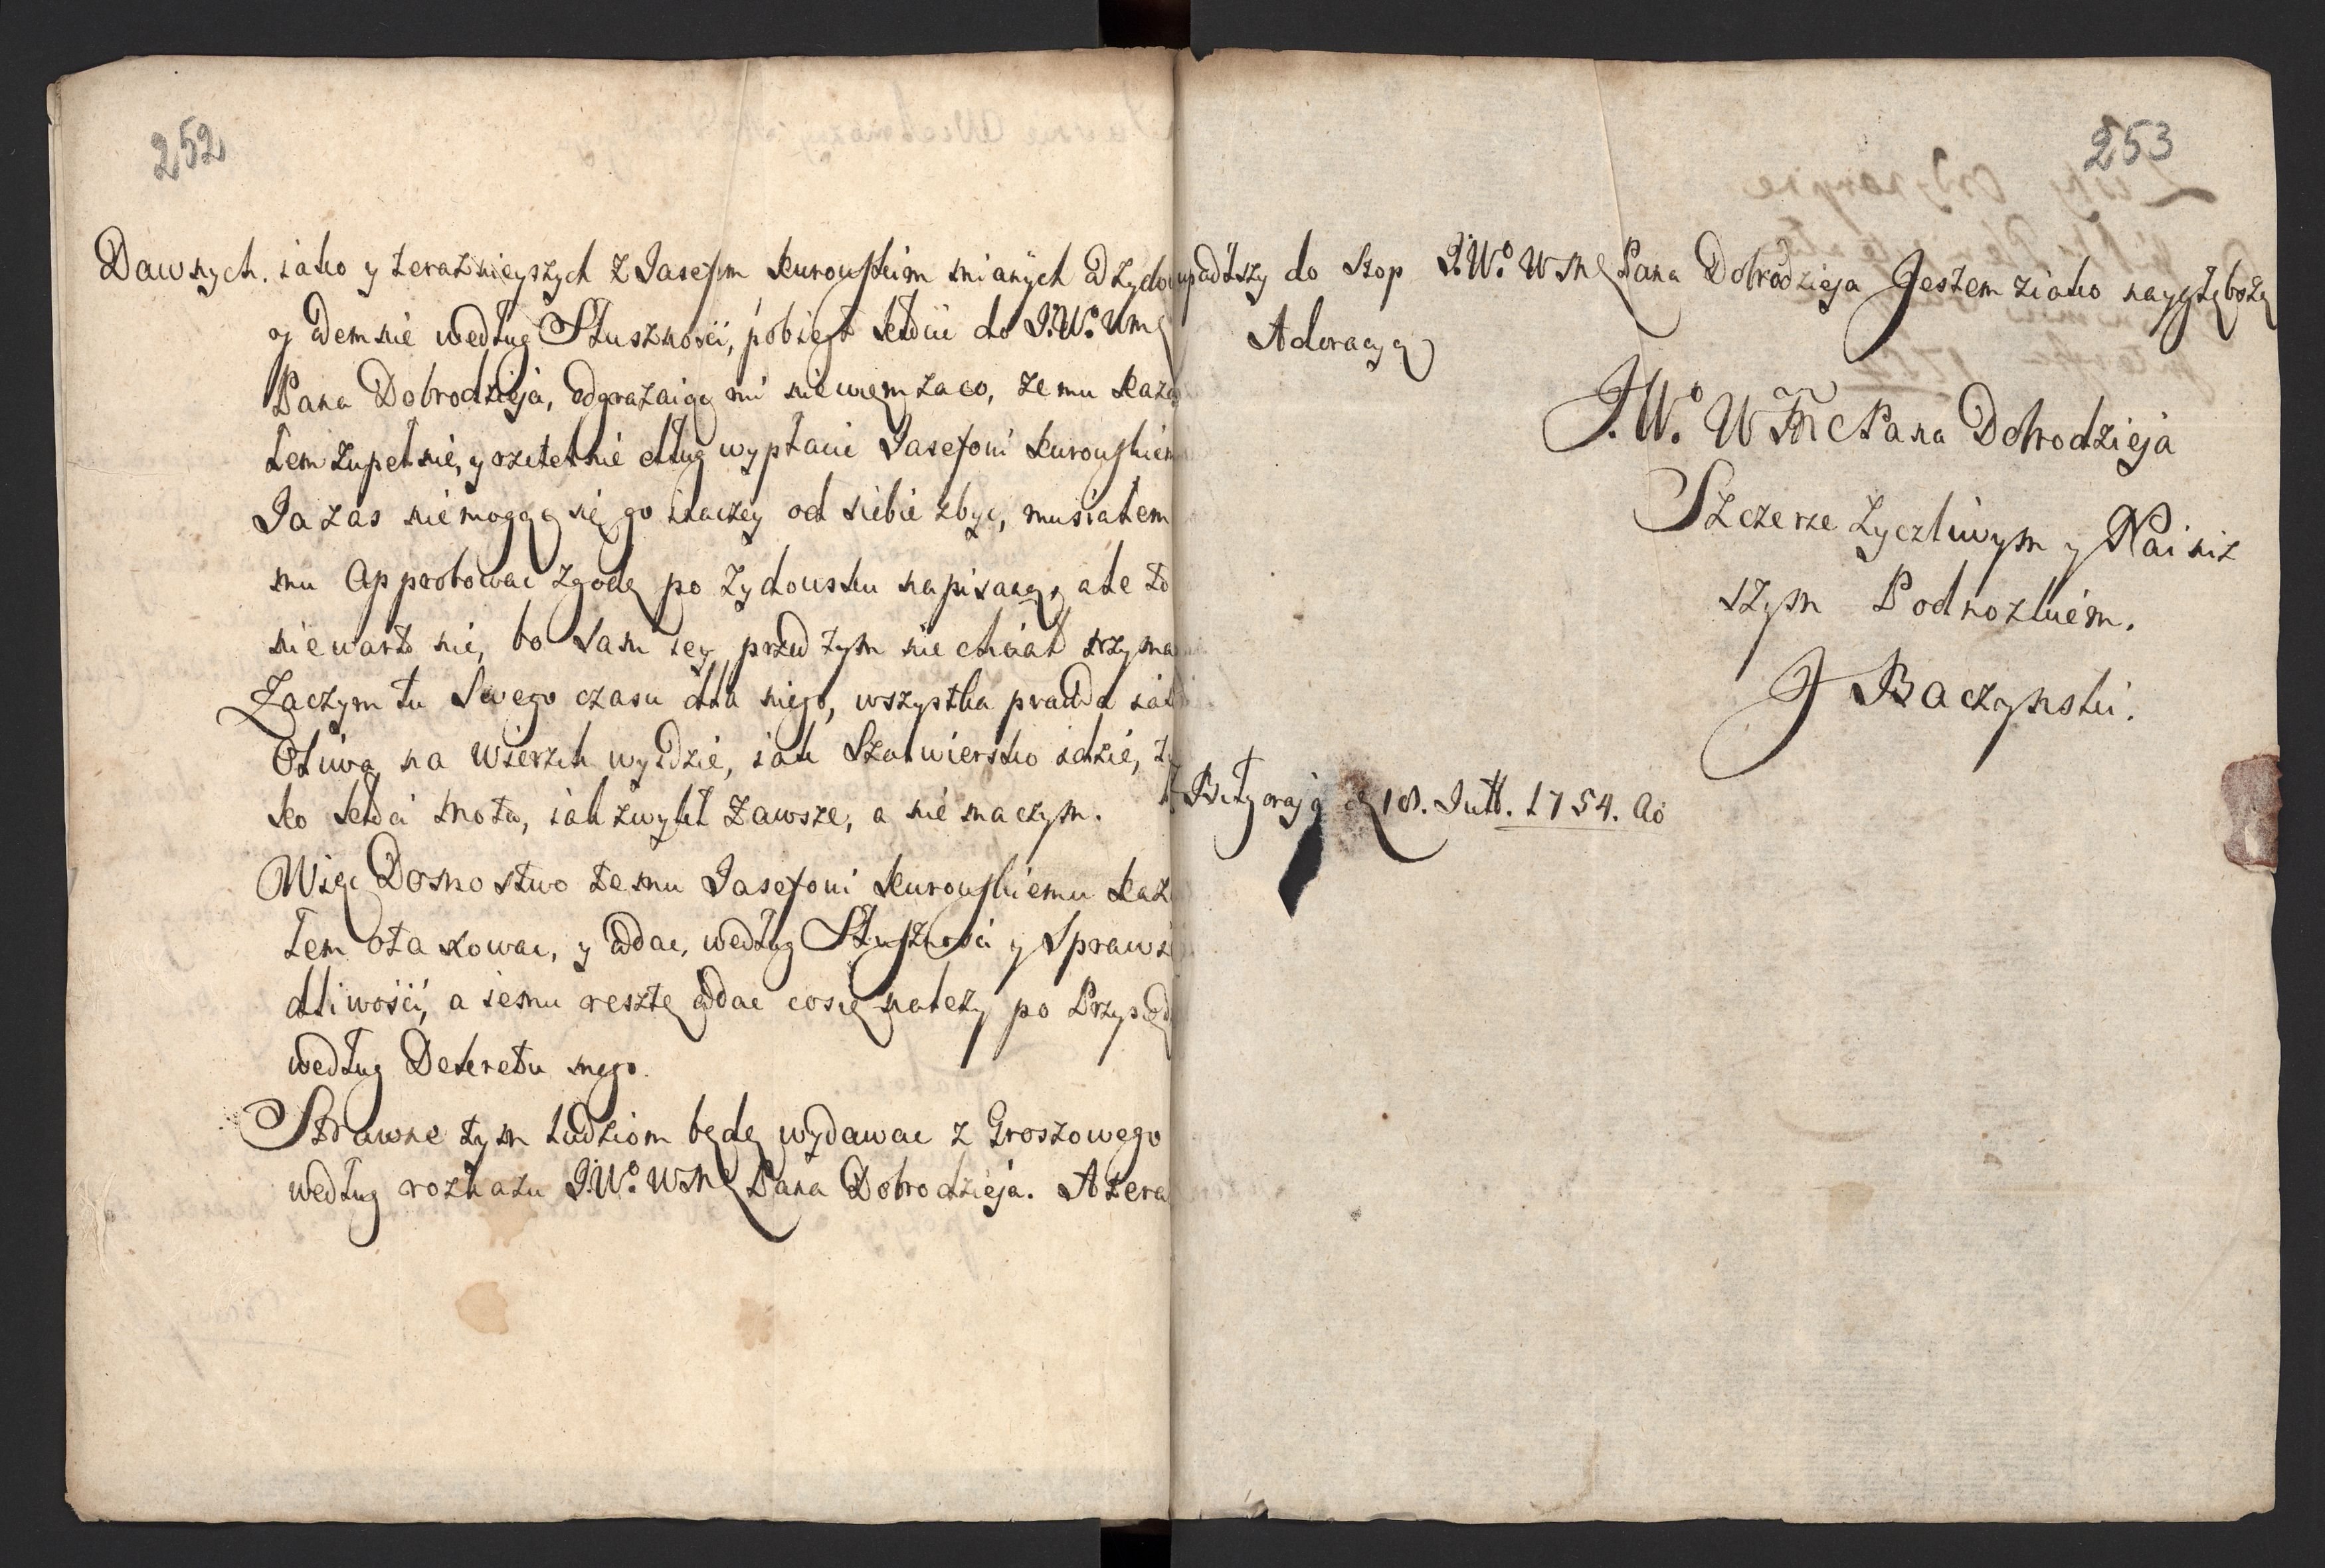 252
Dawnych. iako y teraznieyszych z Iasefem Kurowskim mianych od Zydow
y odemnie według Słusznosci, pobiegł kłócic do J.W.o Wme
Pana Dobrodzieja, odgrazaiąc mi niewiem zaco, ze mu kaza
łem zupełnie, y rzetelnie dług wypłacic Iasefowi Kurowskiem
Ia zas niemogąc się go inaczey od siebie zbyc, musiałem
mu Approbowac zgodę po zydowsku napisaną, ale to
niewarto nic, bo sam iey przed tym nie chciał trzyma
Zaczym tu Swego czasu dla niego, wszystka prawda iak
Oliwa na wierzch wyidzie, iak Szalwiersko idzie,
ko kłóci mota, iak zwykł zawsze, a nie inaczym.
Więc Domostwo temu Iasefowi Kurowskiemu kaza
łem otaxowac, y oddac, według Słusznosci y Sprawie
dliwości, a iemu resztę oddac cosię nalezy po Przysięd
według Dekretu mego.
Strawne tym ludziom będę wydawac z Groszowego
według rozkazu J.W.o WMe Pana Dobrodzieja. A tera
253
upadłszy do Stop J.W.o WMe Pana Dobrodzieja Jestem ziako naygłębszą
Adoracyą
J.W.o WMć Pana Dobrodzieja
Szczerze Zyczliwym y Nainiz
szym Podnozkiem.
J Baczynski.
Biłgoraja d 18. Jull. 1754. Ao